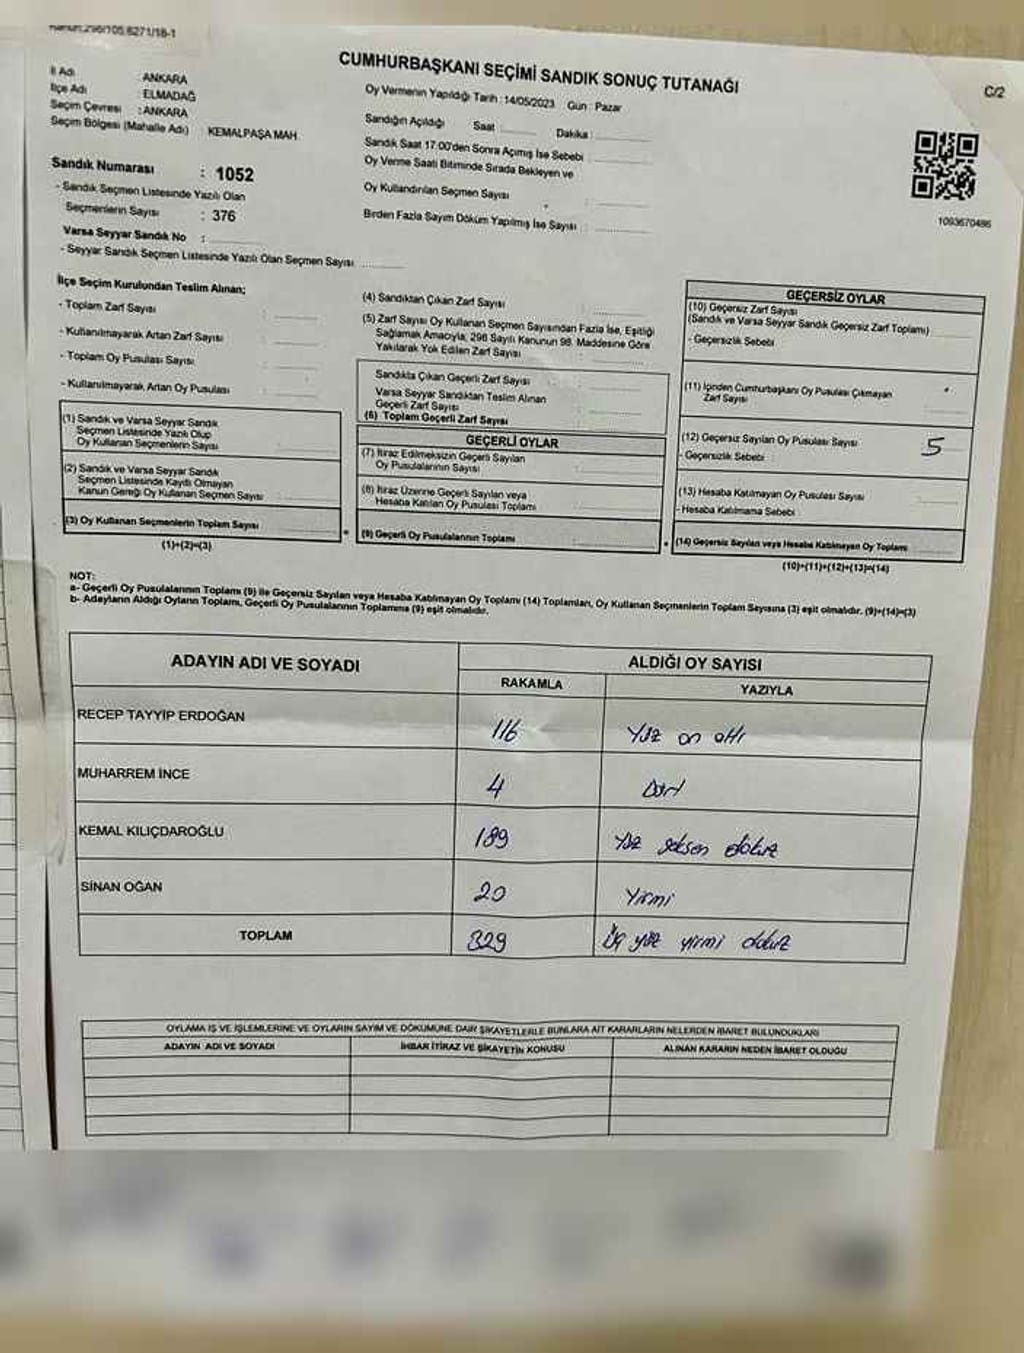 Kanun:296/105,6271/18-1
CUMHURBAŞKANI SEÇİMİ SANDIK SONUÇ TUTANAĞI
C/2
İl Adı : ANKARA
İlçe Adı : ELMADAĞ
Seçim Çevresi : ANKARA
Seçim Bölgesi (Mahalle Adı) KEMALPAŞA MAH.
Sandık Numarası : 1052
- Sandık Seçmen Listesinde Yazılı Olan
Seçmenlerin Sayısı : 376
Varsa Seyyar Sandık No :
- Seyyar Sandık Seçmen Listesinde Yazılı Olan Seçmen Sayısı
Oy Vermenin Yapıldığı Tarih : 14/05/2023 Gün : Pazar
Sandığın Açıldığı Saat Dakika :
Sandık Saat 17:00'den Sonra Açımış İse Sebebi
Oy Verme Saati Bitiminde Sırada Bekleyen ve
Oy Kullandırılan Seçmen Sayısı
Birden Fazla Sayım Döküm Yapılmış İse Sayısı
1093670486
İlçe Seçim Kurulundan Teslim Alınan;
- Toplam Zarf Sayısı
- Kullanılmayarak Artan Zarf Sayısı
- Toplam Oy Pusulası Sayısı
- Kullanılmayarak Artan Oy Pusulası
(1) Sandık ve Varsa Seyyar Sandık
Seçmen Listesinde Yazılı Olup
Oy Kullanan Seçmenlerin Sayısı
(2) Sandık ve Varsa Seyyar Sandık
Seçmen Listesinde Kayıtlı Olmayan
Kanun Gereği Oy Kullanan Seçmen Sayısı
(3) Oy Kullanan Seçmenlerin Toplam Sayısı
(1)+(2)=(3)
(4) Sandıktan Çıkan Zarf Sayısı
(5) Zarf Sayısı Oy Kullanan Seçmen Sayısından Fazla İse, Eşitliği
Sağlamak Amacıyla, 298 Sayılı Kanunun 98. Maddesine Göre
Yakılarak Yok Edilen Zarf Sayısı
Sandıkta Çıkan Geçerli Zarf Sayısı
Varsa Seyyar Sandıktan Teslim Alınan
Geçerli Zarf Sayısı
(6) Toplam Geçerli Zarf Sayısı
GEÇERLİ OYLAR
(7) İtiraz Edilmeksizin Geçerli Sayılan
Oy Pusulalarının Sayısı
(8) İtiraz Üzerine Geçerli Sayılan veya
Hesaba Katılan Oy Pusulası Toplamı
(9) Geçerli Oy Pusulalarının Toplamı
GEÇERSİZ OYLAR
(10) Geçersiz Zarf Sayısı
(Sandık ve Varsa Seyyar Sandık Geçersiz Zarf Toplamı)
- Geçersizlik Sebebi
(11) İçinden Cumhurbaşkanı Oy Pusulası Çıkmayan
Zarf Sayısı
(12) Geçersiz Sayılan Oy Pusulası Sayısı 5
- Geçersizlik Sebebi :
(13) Hesaba Katılmayan Oy Pusulası Sayısı
- Hesaba Katılmama Sebebi
(14) Geçersiz Sayılan veya Hesaba Katılmayan Oy Toplamı
(10)+(11)+(12)+(13)=(14)
NOT:
a- Geçerli Oy Pusulalarının Toplamı (9) ile Geçersiz Sayılan veya Hesaba Katılmayan Oy Toplamı (14) Toplamları, Oy Kullanan Seçmenlerin Toplam Sayısına (3) eşit olmalıdır. (9)+(14)=(3)
b- Adayların Aldığı Oyların Toplamı, Geçerli Oy Pusulalarının Toplamına (9) eşit olmalıdır.
ADAYIN ADI VE SOYADI ALDIĞI OY SAYISI
RAKAMLA YAZIYLA
RECEP TAYYİP ERDOĞAN 116 Yüz on altı
MUHARREM İNCE 4 Dört
KEMAL KILIÇDAROĞLU 189 Yüz seksen dokuz
SİNAN OĞAN 20 Yirmi
TOPLAM 329 Üç yüz yirmi dokuz
OYLAMA İŞ VE İŞLEMLERİNE VE OYLARIN SAYIM VE DÖKÜMÜNE DAİR ŞİKAYETLERLE BUNLARA AİT KARARLARIN NELERDEN İBARET BULUNDUKLARI
ADAYIN ADI VE SOYADI İHBAR İTİRAZ VE ŞİKAYETİN KONUSU ALINAN KARARIN NEDEN İBARET OLDUĞU